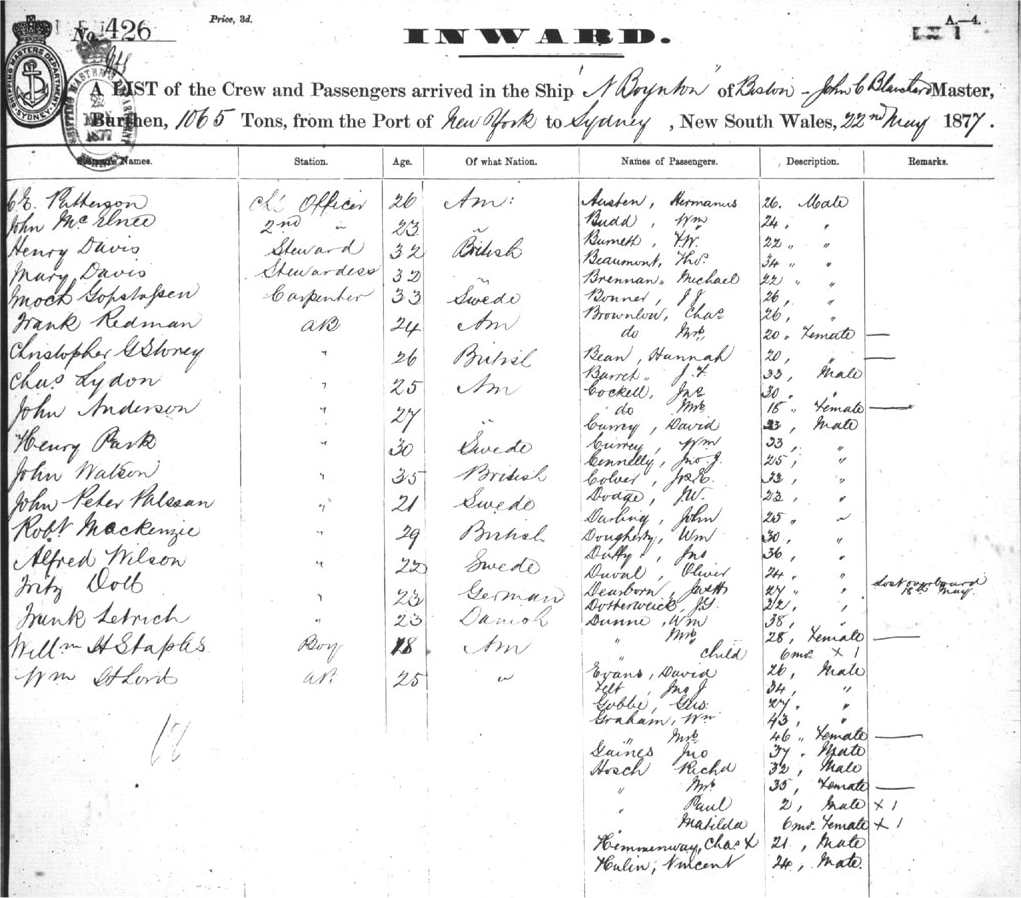 No. 426
Price, 3d.
INWARD.
A.—4.
SHIPPING MASTERS DEPARTMENT SYDNEY
1877
A LIST of the Crew and Passengers arrived in the Ship "N Boynton" of Boston – John C Blanchard Master,
Burthen, 1065 Tons, from the Port of New York to Sydney, New South Wales, 22nd May 1877.
Names. Station. Age. Of what Nation. Names of Passengers. Description. Remarks.
Patterson Officer 26 Am:
John 2nd " 23 "
Henry Davis Steward 32 British
Mary Davis Stewardess 32 "
Carpenter 33 Swede
Frank Redman AB 24 Am
Christopher G Storey " 26 British
Chas Lydon " 25 Am
John Anderson " 27 "
Henry Park " 30 Swede
John Watson " 35 British
John Peter " 21 Swede
Robt Mackenzie " 29 British
Alfred Wilson " 22 Swede
Fritz " 23 German
Frank " 23 Danish
Willm H Staples Boy 18 Am
Wm AB. 25 "
18
Austen, Hermanus 26. Male
Budd, Wm 24, "
Burnett, F.W. 22 " "
Beaumont, Thos. 34 " "
Brennan " Michael 22 " "
Bonner, J J 26, "
Brownlow, Chas 26, "
do Mrs 20 " Female —
Bean, Hannah 20, " —
Barret " J. F 33, Male
Cockell, Jno 30, "
do Mrs Female —
Currey, David 23, Male
Currey, Wm 33, "
Connelly, Jno. J. 25, "
Colver, 32, "
Dodge, J.W. 23, "
Darling, John 25 " "
Dougherty, Wm 30, "
Duffy, Jno 36, "
Duval, Oliver 24, "
Dearborn, 27 " " Lost overboard 18th May
J.G. 22, "
Dunne, Wm 38, "
" Mrs 28, Female —
" Child 6 mos. X 1
Evans, David 26, Male
Felt, Jno J 34, "
Gobbe, Gus. 27, "
Graham, Wm 43, "
" Mrs 46 " Female —
Gaines Jno 37, Male
Hosch Richd 32, Male
" Mrs 35, Female —
" Paul 2, Male X 1
" Matilda 6 mos. Female X 1
Hemmenway, Chas 21, Male
Hulin, Vincent 24, Male.